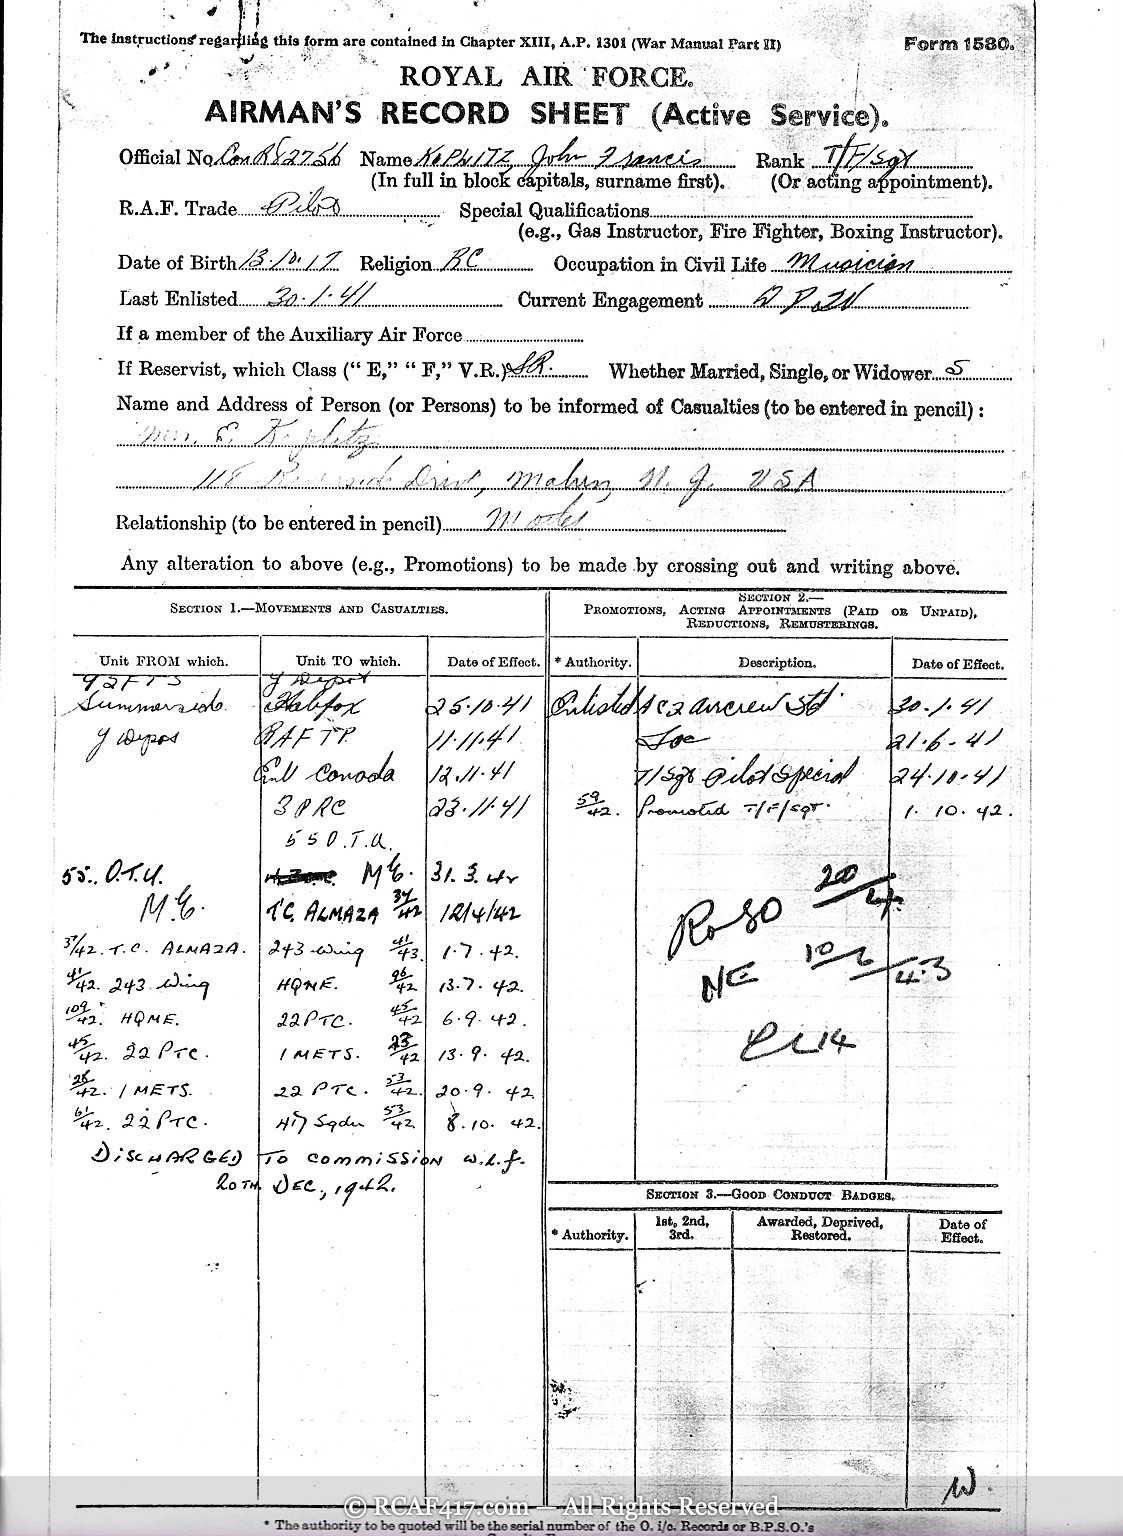 The instructions regarding this form are contained in Chapter XIII, A.P. 1301 (War Manual Part II) Form 1580.
ROYAL AIR FORCE.
AIRMAN'S RECORD SHEET (Active Service).
Official No. Can R82756 Name KOPLITZ, John Francis Rank T/F/Sgt
(In full in block capitals, surname first). (Or acting appointment).
R.A.F. Trade Pilot Special Qualifications
(e.g., Gas Instructor, Fire Fighter, Boxing Instructor).
Date of Birth 13.10.17 Religion RC Occupation in Civil Life Musician
Last Enlisted 30.1.41 Current Engagement
If a member of the Auxiliary Air Force
If Reservist, which Class ("E," "F," V.R.) SR. Whether Married, Single, or Widower S
Name and Address of Person (or Persons) to be informed of Casualties (to be entered in pencil) :
Mrs. E. Koplitz
118 Riverside Drive, N. J. USA
Relationship (to be entered in pencil) Mother
Any alteration to above (e.g., Promotions) to be made by crossing out and writing above.
SECTION 1.—MOVEMENTS AND CASUALTIES.
SECTION 2.—
PROMOTIONS, ACTING APPOINTMENTS (PAID OR UNPAID),
REDUCTIONS, REMUSTERINGS.
Unit FROM which. Unit TO which. Date of Effect. * Authority. Description. Date of Effect.
9SFTS Y Depot
Summerside Halifax 25.10.41 Enlisted AC2 Aircrew Std 30.1.41
Y Depot RAFTP 11.11.41 Lac 21.6.41
Canada 12.11.41 T/Sgt Pilot Special 24.10.41
3 PRC 23.11.41 59/42. Promoted T/F/Sgt. 1.10.42.
55 O.T.U.
55. O.T.U. M.E. 31.3.42
M.E. T.C. ALMAZA 37/42 12/4/42
37/42. T.C. ALMAZA. 243 Wing 41/43. 1.7.42.
41/42. 243 Wing HQME. 96/42 13.7.42.
109/42. HQME. 22 PTC. 45/42 6.9.42.
45/42. 22 PTC. 1 METS. 23/42 13.9.42.
26/42. 1 METS. 22 PTC. 53/42. 20.9.42
61/42. 22 PTC. 417 Sqdn 53/42. 8.10.42.
DISCHARGED TO COMMISSION w.e.f.
20TH DEC., 1942.
NE 10/2/43
SECTION 3.—GOOD CONDUCT BADGES.
* Authority. 1st, 2nd, 3rd. Awarded, Deprived, Restored. Date of Effect.
W.
© RCAF417.com — All Rights Reserved
* The authority to be quoted will be the serial number of the O. i/c. Records or B.P.S.O.'s